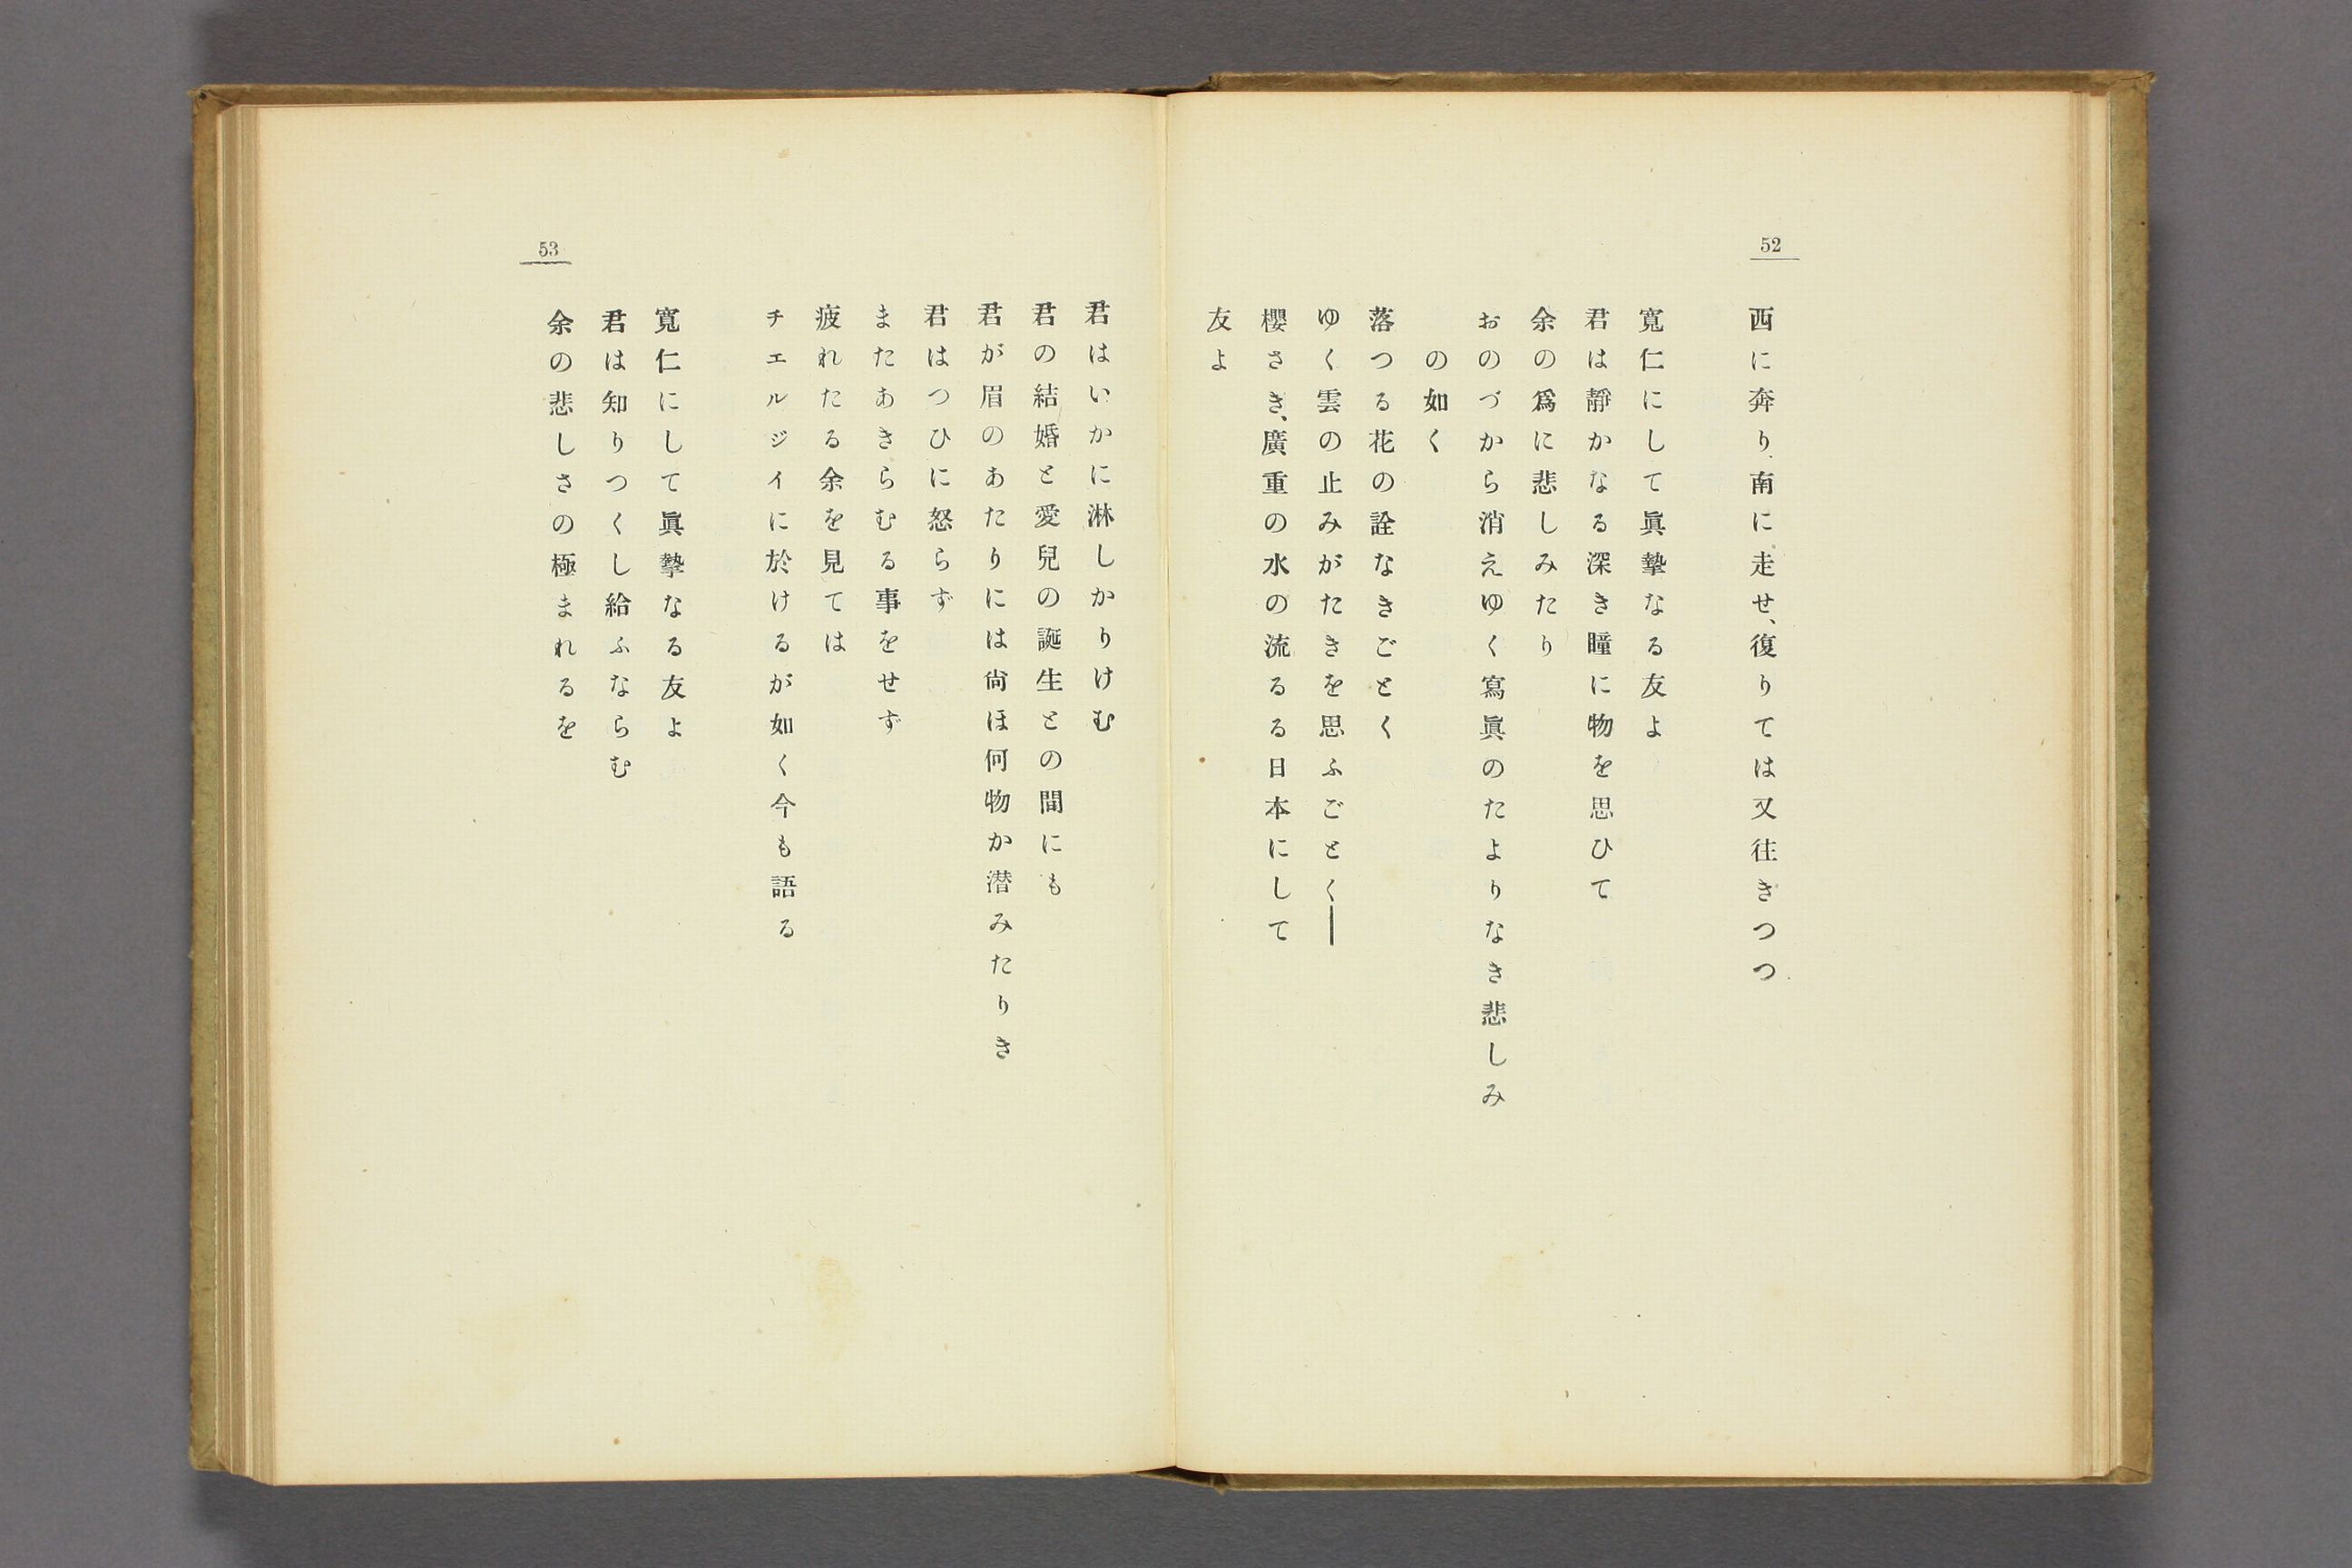 52
西に奔り、南に走せ、復りては又往きつつ
寬仁にして眞摯なる友よ
君は靜かなる深き瞳に物を思ひて
余の爲に悲しみたり
おのづから消えゆく寫眞のたよりなき悲しみ
の如く
落つる花の詮なきごとく
ゆく雲の止みがたきを思ふごとく――
櫻さき、廣重の水の流るる日本にして
友よ
53
君はいかに淋しかりけむ
君の結婚と愛兒の誕生との間にも
君が眉のあたりには尙ほ何物か潜みたりき
君はつひに怒らず
またあきらむる事をせず
疲れたる余を見ては
チエルジイに於けるが如く今も語る
寬仁にして眞摯なる友よ
君は知りつくし給ふならむ
余の悲しさの極まれるを